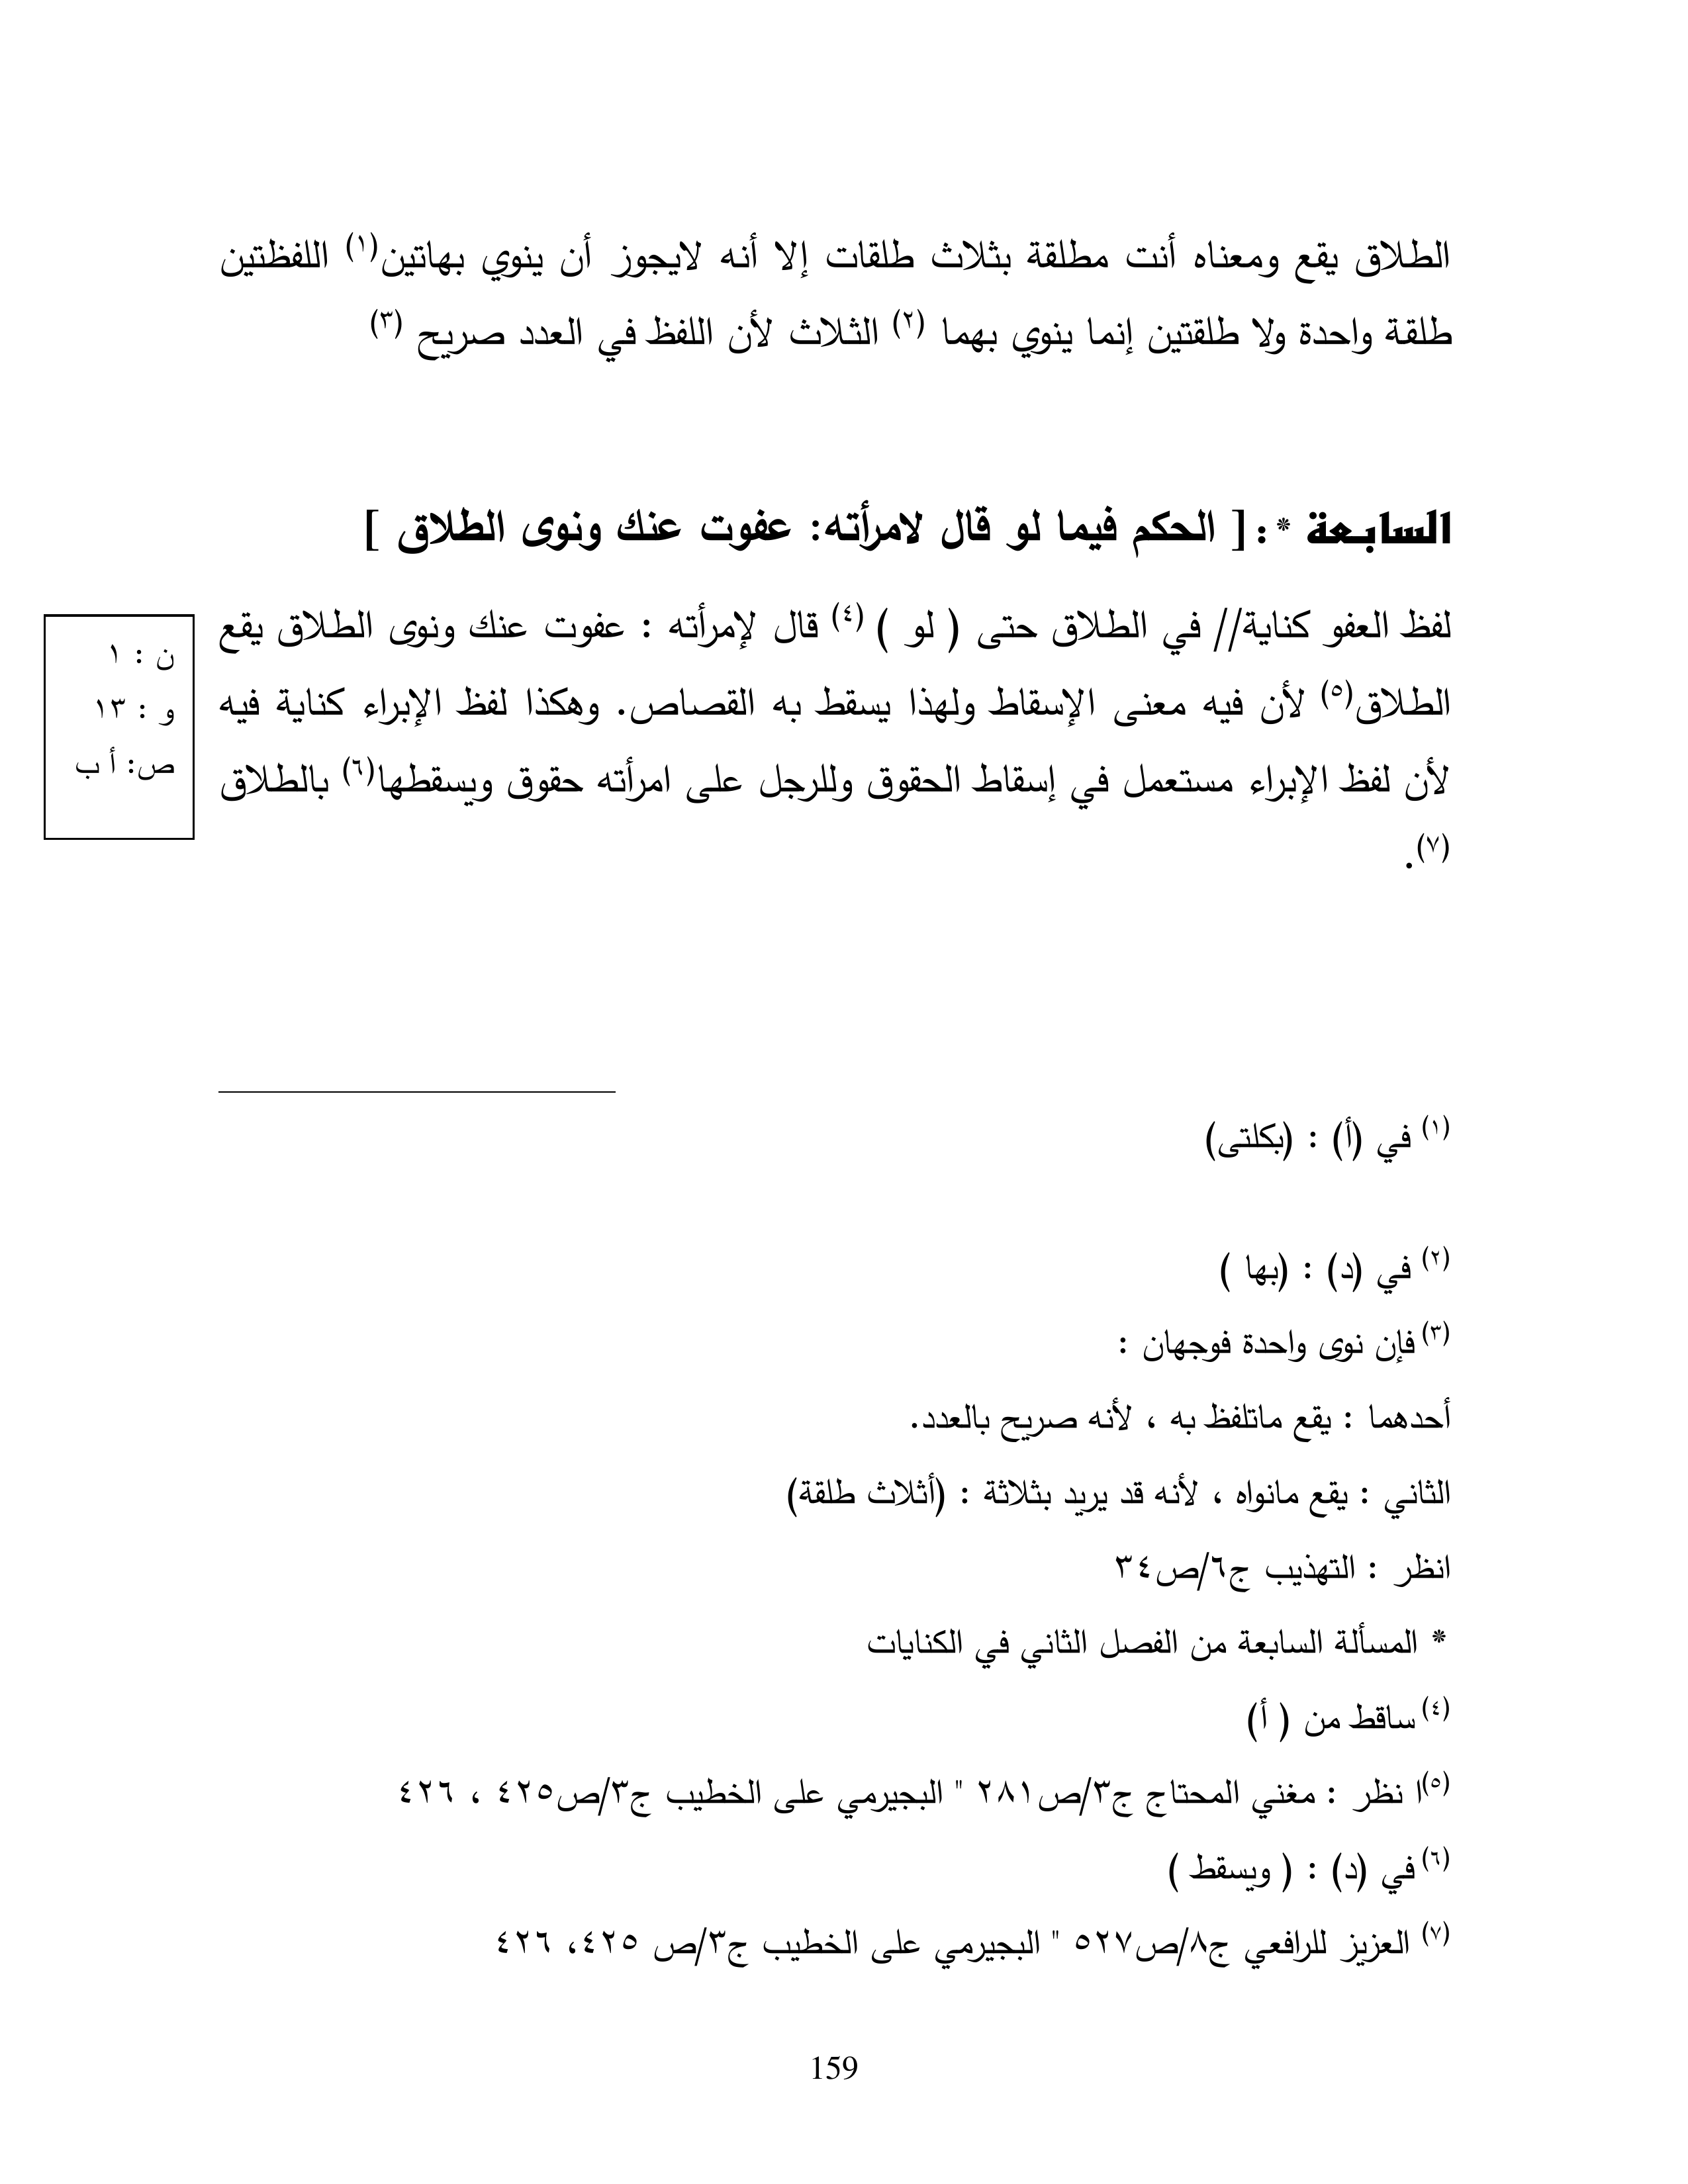 الطلاق يقع ومعناه أنت مطلقة بثلاث طلقات إلا أنه لايجوز أن ينوي بهاتين(١) اللفظتين
طلقة واحدة ولا طلقتين إنما ينوي بهما (٢) الثلاث لأن اللفظ في العدد صريح (٣)
السابعة * : [ الحكم فيما لو قال لامرأته: عفوت عنك ونوى الطلاق ]
لفظ العفو كناية// في الطلاق حتى ( لو ) (٤) قال لإمرأته : عفوت عنك ونوى الطلاق يقع
الطلاق(٥) لأن فيه معنى الإسقاط ولهذا يسقط به القصاص. وهكذا لفظ الإبراء كناية فيه
لأن لفظ الإبراء مستعمل في إسقاط الحقوق وللرجل على امرأته حقوق ويسقطها(٦) بالطلاق
(٧).
ن : ١
و : ١٣
ص: أ ب
(١) في (أ) : (بكلتى)
(٢) في (د) : (بها )
(٣) فإن نوى واحدة فوجهان :
أحدهما : يقع ماتلفظ به ، لأنه صريح بالعدد.
الثاني : يقع مانواه ، لأنه قد يريد بثلاثة : (أثلاث طلقة)
انظر : التهذيب ج٦/ص٣٤
* المسألة السابعة من الفصل الثاني في الكنايات
(٤) ساقط من ( أ)
(٥)ا نظر : مغني المحتاج ج٣/ص٢٨١ " البجيرمي على الخطيب ج٣/ص٤٢٥ ، ٤٢٦
(٦) في (د) : ( ويسقط )
(٧) العزيز للرافعي ج٨/ص٥٢٧ " البجيرمي على الخطيب ج٣/ص ٤٢٥، ٤٢٦
159